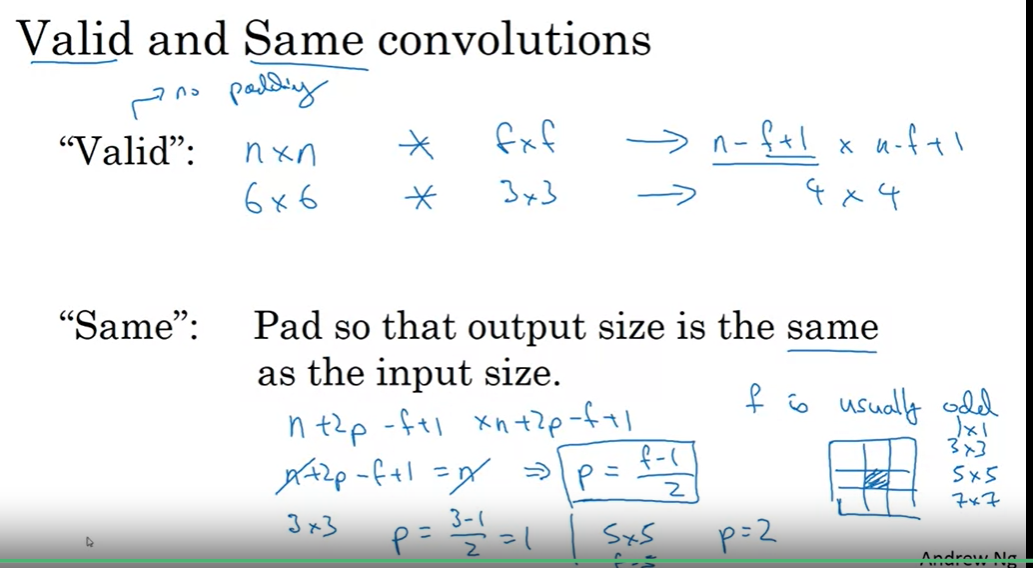 Valid and Same convolutions
→ no padding
“Valid”: n×n * f×f → n-f+1 × n-f+1
6×6 * 3×3 → 4 × 4
“Same”: Pad so that output size is the same
as the input size.
n+2p-f+1 ×n+2p-f+1
n+2p-f+1 = n ⇒ p = (f-1)/2
3×3 p = (3-1)/2 = 1 | 5×5 p=2
f is usually odd
1×1
3×3
5×5
7×7
Andrew Ng